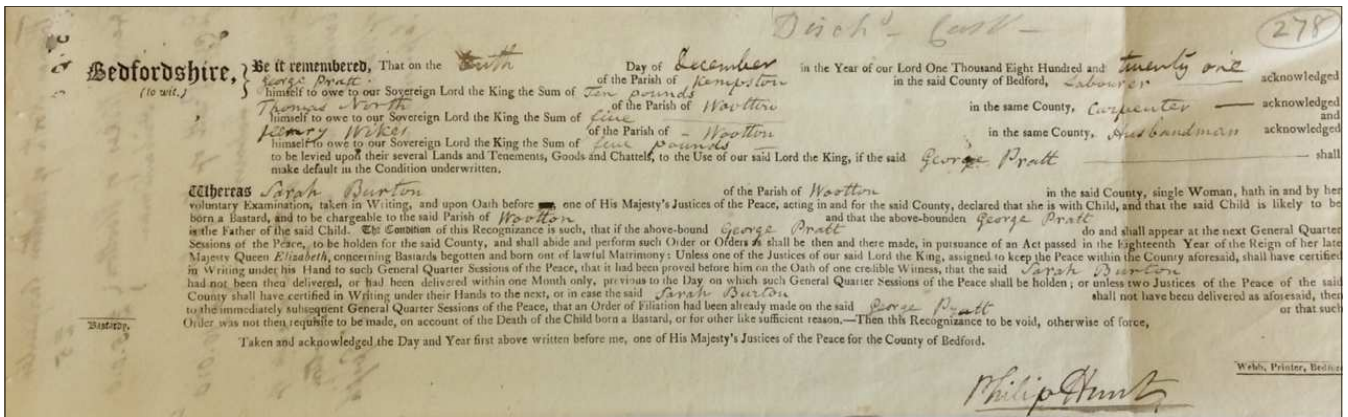 Disch'd Cost
278
Bedfordshire, (to wit.)
Be it remembered, That on the tenth Day of December in the Year of our Lord One Thousand Eight Hundred and twenty one
George Pratt of the Parish of Kempston in the said County of Bedford, Labourer acknowledged
himself to owe to our Sovereign Lord the King the Sum of Ten pounds
Thomas North of the Parish of Wootton in the same County, Carpenter — acknowledged
himself to owe to our Sovereign Lord the King the Sum of five and
Henry Wikes of the Parish of – Wootton in the same County, Husbandman acknowledged
himself to owe to our Sovereign Lord the King the Sum of five pounds
to be levied upon their several Lands and Tenements, Goods and Chattels, to the Use of our said Lord the King, if the said George Pratt shall
make default in the Condition underwritten.
Whereas Sarah Burton of the Parish of Wootton in the said County, single Woman, hath in and by her
voluntary Examination, taken in Writing, and upon Oath before one of His Majesty's Justices of the Peace, acting in and for the said County, declared that she is with Child, and that the said Child is likely to be
born a Bastard, and to be chargeable to the said Parish of Wootton and that the above-bounden George Pratt
is the Father of the said Child. The Condition of this Recognizance is such, that if the above-bound George Pratt do and shall appear at the next General Quarter
Sessions of the Peace, to be holden for the said County, and shall abide and perform such Order or Orders as shall be then and there made, in pursuance of an Act passed in the Eighteenth Year of the Reign of her late
Majesty Queen Elizabeth, concerning Bastards begotten and born out of lawful Matrimony: Unless one of the Justices of our said Lord the King, assigned to keep the Peace within the County aforesaid, shall have certified
in Writing under his Hand to such General Quarter Sessions of the Peace, that it had been proved before him on the Oath of one credible Witness, that the said Sarah Burton
had not been then delivered, or had been delivered within one Month only, previous to the Day on which such General Quarter Sessions of the Peace shall be holden; or unless two Justices of the Peace of the said
County shall have certified in Writing under their Hands to the next, or in case the said Sarah Burton shall not have been delivered as aforesaid, then
to the immediately subsequent General Quarter Sessions of the Peace, that an Order of Filiation had been already made on the said George Pratt or that such
Order was not then requisite to be made, on account of the Death of the Child born a Bastard, or for other like sufficient reason.—Then this Recognizance to be void, otherwise of force,
Bastardy.
Taken and acknowledged the Day and Year first above written before me, one of His Majesty's Justices of the Peace for the County of Bedford.
Webb, Printer, Bedford
Philip Hunt